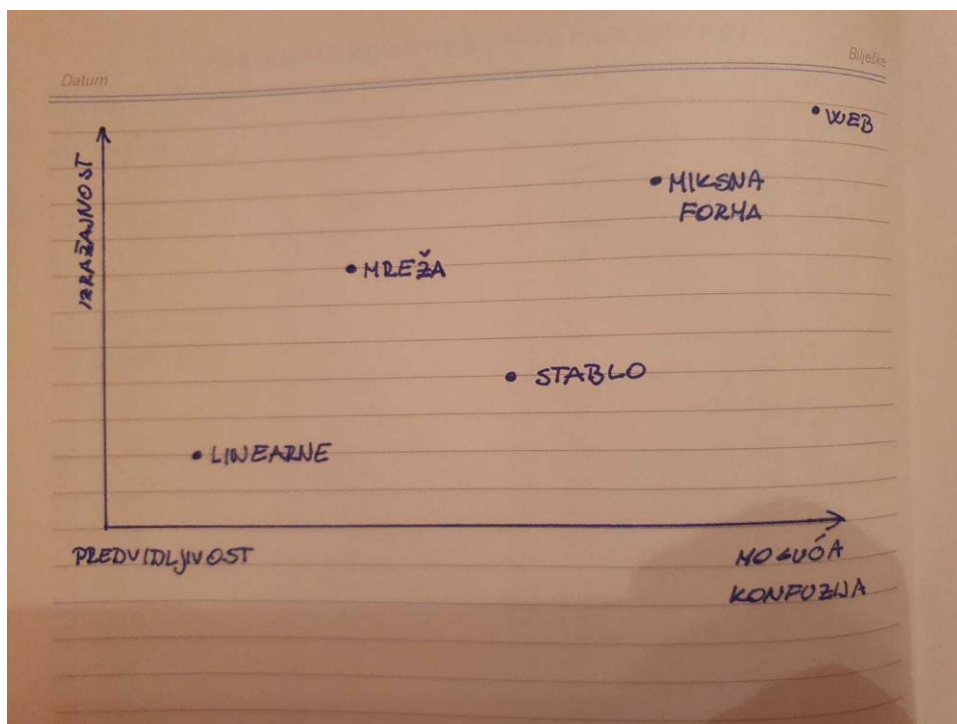 Datum
Bilješke
WEB
IZRAŽAJNOST
MIKSNA
FORMA
MREŽA
STABLO
LINEARNE
PREDVIDLJIVOST
MOGUĆA
KONFUZIJA